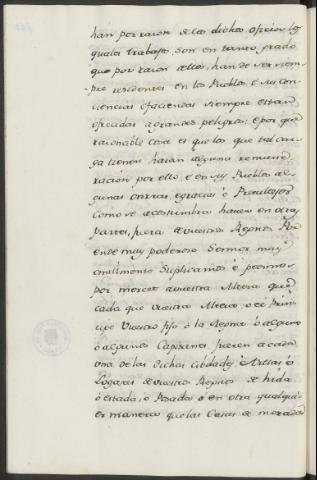 han por razon de los dichos oficios los
quales trabaxos son en tanto grado
que por razon dellos, han de ser siem-
pre residentes en los Pueblos e sus con-
ciencias e faciendas siempre estan
ofrecidas a grandes peligros; e por que
razonable cosa es que los que tal car-
ga tienen haian alguna remune-
racion por ello e en sus Pueblos al-
gunas onrras, e gracias e Previlejios
como se acostumbra hacer en otras
partes, fuera de vuestros Regnos Por
ende muy poderoso Señor muy
omilmente Suplicamos e pedimos
por merced a vuestra Altera que
cada que vuestra Altera, o el Prin-
cipe Vuestro fijo o la Reyna o alguno
o algunos Capitanes fueren a cada
una de las dichas Cibdades, e Villas, o
Logares de vuestros Regnos de hida
o estada, o Posada o en otra qualqui-
er manera que las Casas de morada